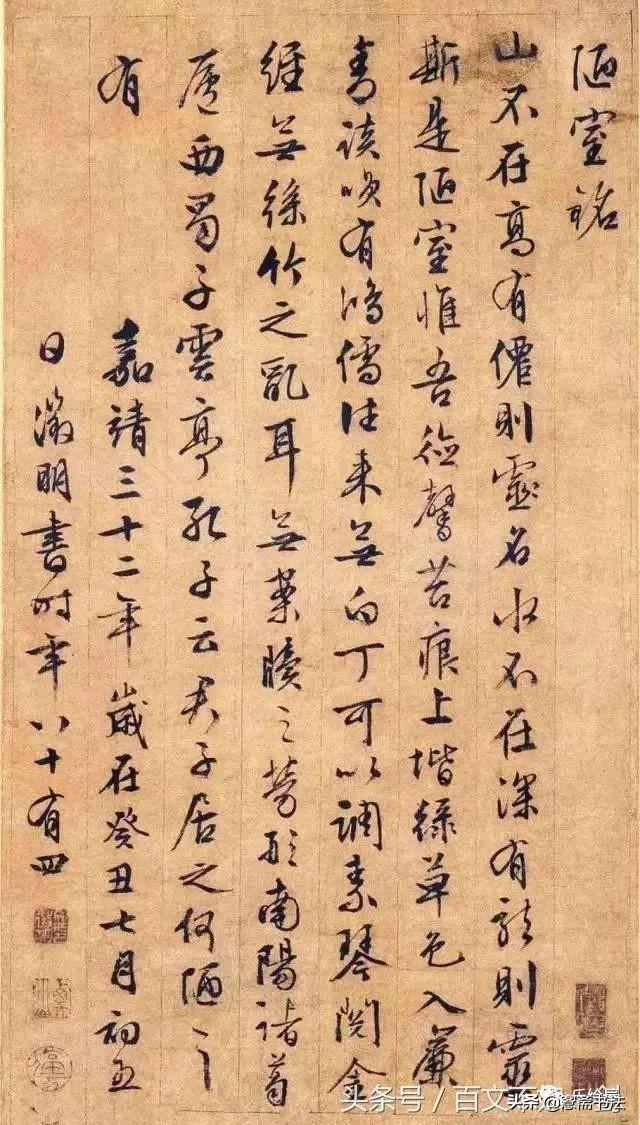 陋室銘
山不在高有僊則靈名水不在深有龍則靈
斯是陋室惟吾德馨苔痕上堦綠草色入簾
青談咲有鴻儒往来無白丁可以調素琴閱金
經無絲竹之亂耳無案牘之勞形南陽諸葛
廬西蜀子雲亭孔子云君子居之何陋之
有
嘉靖三十二年歲在癸丑七月初五
日徵明書時年八十有四
头条号／百文